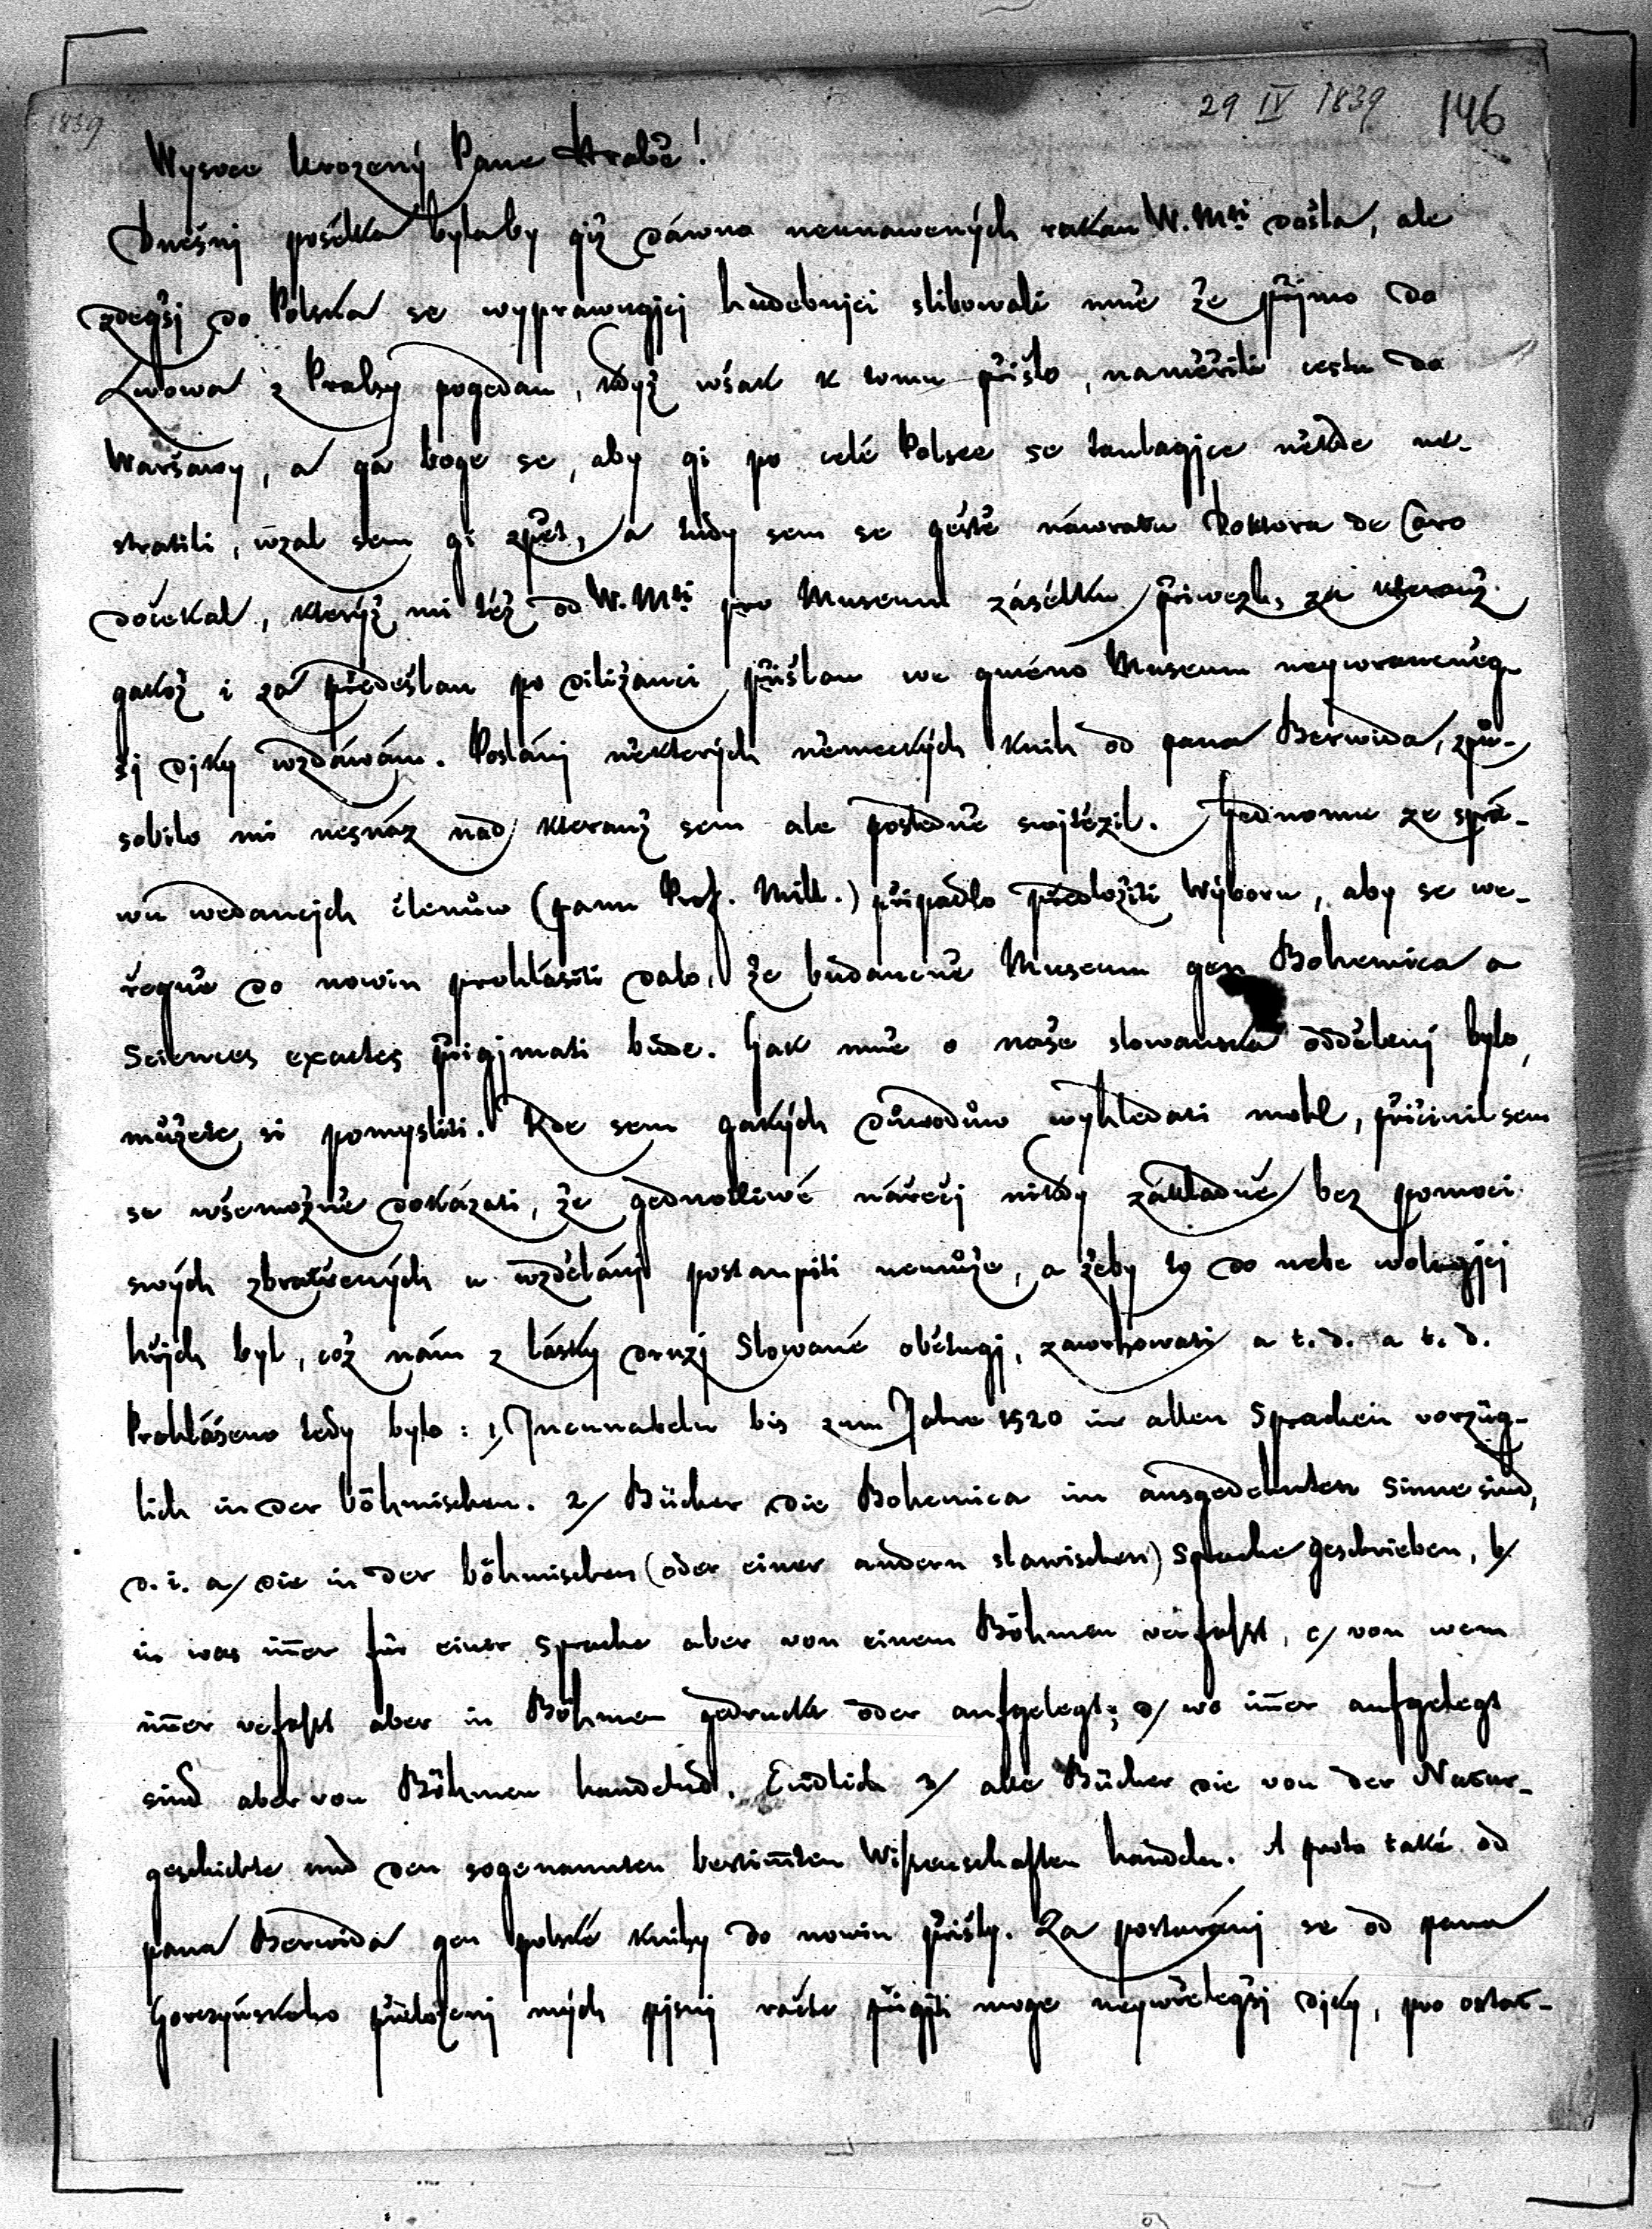 1839
29 IV 1839 146
Wysoce Urozený Pane Hrabě!
Dnešnj posélka bylaby giž dáwno neunawených rukau W. Mti došla, ale
zdegšj do Polska se wyprawugjcj hudebnjci slibowali mně že přjmo do
Lwowa z Prahy pogedau, když wšak k tomu přišlo, naměřili cestu do
Waršawy, a gá boge se, aby gi po celé Polsce se taulagjce někde ne-
stratili, wzal sem gi zpět, a tudy sem se gěště náwratu Doktora de Caro
dočekal, kterýž mi též od W. Mti pro Museum zásélku přiwezl, za kterauž
gakož i za předešlau po diližanci přišlau we gméno Museum neywraucněg-
šj djky wzdáwám. Poslánj některých německých knih od pana Berwida, způ-
sobilo mi nesnáz nad kterauž sem ale posledně swjtězil. Gednomu ze sprá-
wu wedaucjch členůw (panu Prof. Mill.) připadlo předložiti Wýboru, aby se we-
řegně do nowin prohlásiti dalo, že budaucně Museum gen Bohemica a
Sciences exactes přigjmati bude. Gak mně o naše slowanské oddělenj bylo,
můžete si pomysliti. Kde sem gakých důwodůw wyhledati mohl, přičinil sem
se wšemožně dokázati, že gednotliwé nářečj nikdy základně bez pomoci
swých zbratřených u wzdělánj postaupiti nemůže, a žeby to do nebe wolagjcj
hřjch byl, což nám z lásky druzj Slowané obětugj, zawrhowati a t. d. a t. d.
Prohlášeno tedy bylo: 1, Incunabeln bis zum Jahre 1520 in allen Sprachen vorzüg-
lich in der böhmischen. 2/ Bücher die Bohemica im ausgedehnten Sinne sind,
d. i. a/ die in der böhmischen (oder einer andern slawischen) Sprache geschrieben, b/
in was im̄er für einer Sprache aber von einem Böhmen verfaßt, c/ von wem
im̄er vefaßt aber in Böhmen gedruckt oder aufgelegt; d/ wo im̄er aufgelegt
sind aber von Böhmen handelnd. Endlich 3/ alle Bücher die von der Natur-
geschichte und den sogenannten bestim̄ten Wißenschaften handeln. A proto také od
pana Berwida gen polské knihy do nowin přišly. Za postaránj se od pana
Gorczyńskoho přeloženj mých pjsnj račte přigjti moge neywřelegšj djky, pro ostat-